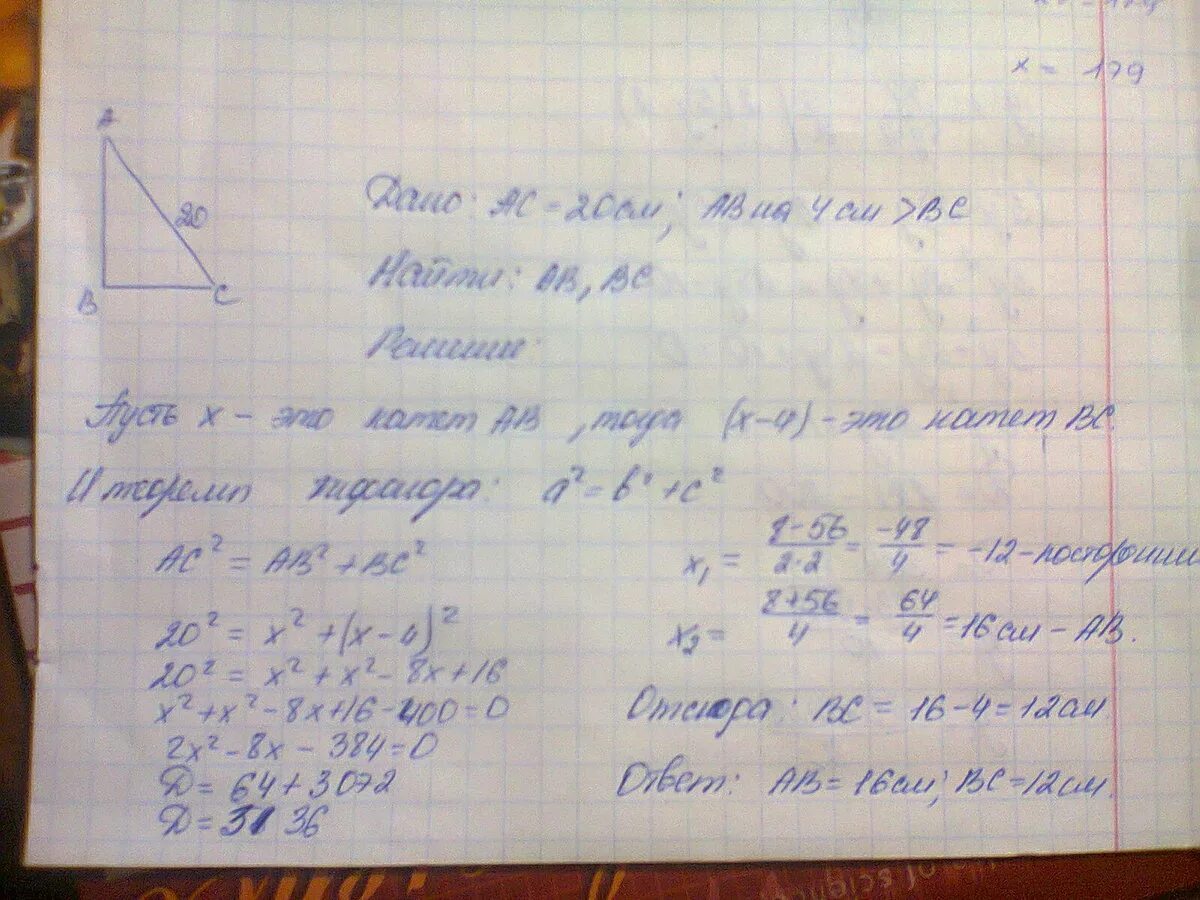 x = 179
A
20
B
C
Дано: AC = 20 см; AB на 4 см > BC
Найти: AB, BC
Решение:
Пусть x – это катет AB, тогда (x-4) – это катет BC.
теореме пифагора: a² = b² + c²
AC² = AB² + BC²
20² = x² + (x-4)²
20² = x² + x² - 8x + 16
x² + x² - 8x + 16 - 400 = 0
2x² - 8x - 384 = 0
Д = 64 + 3072
Д = 3136
x₁ = 8-56/2·2 = -48/4 = -12 - посторонний
x₂ = 8+56/4 = 64/4 = 16 см - AB.
Отсюда: BC = 16 - 4 = 12 см.
Ответ: AB = 16 см; BC = 12 см.